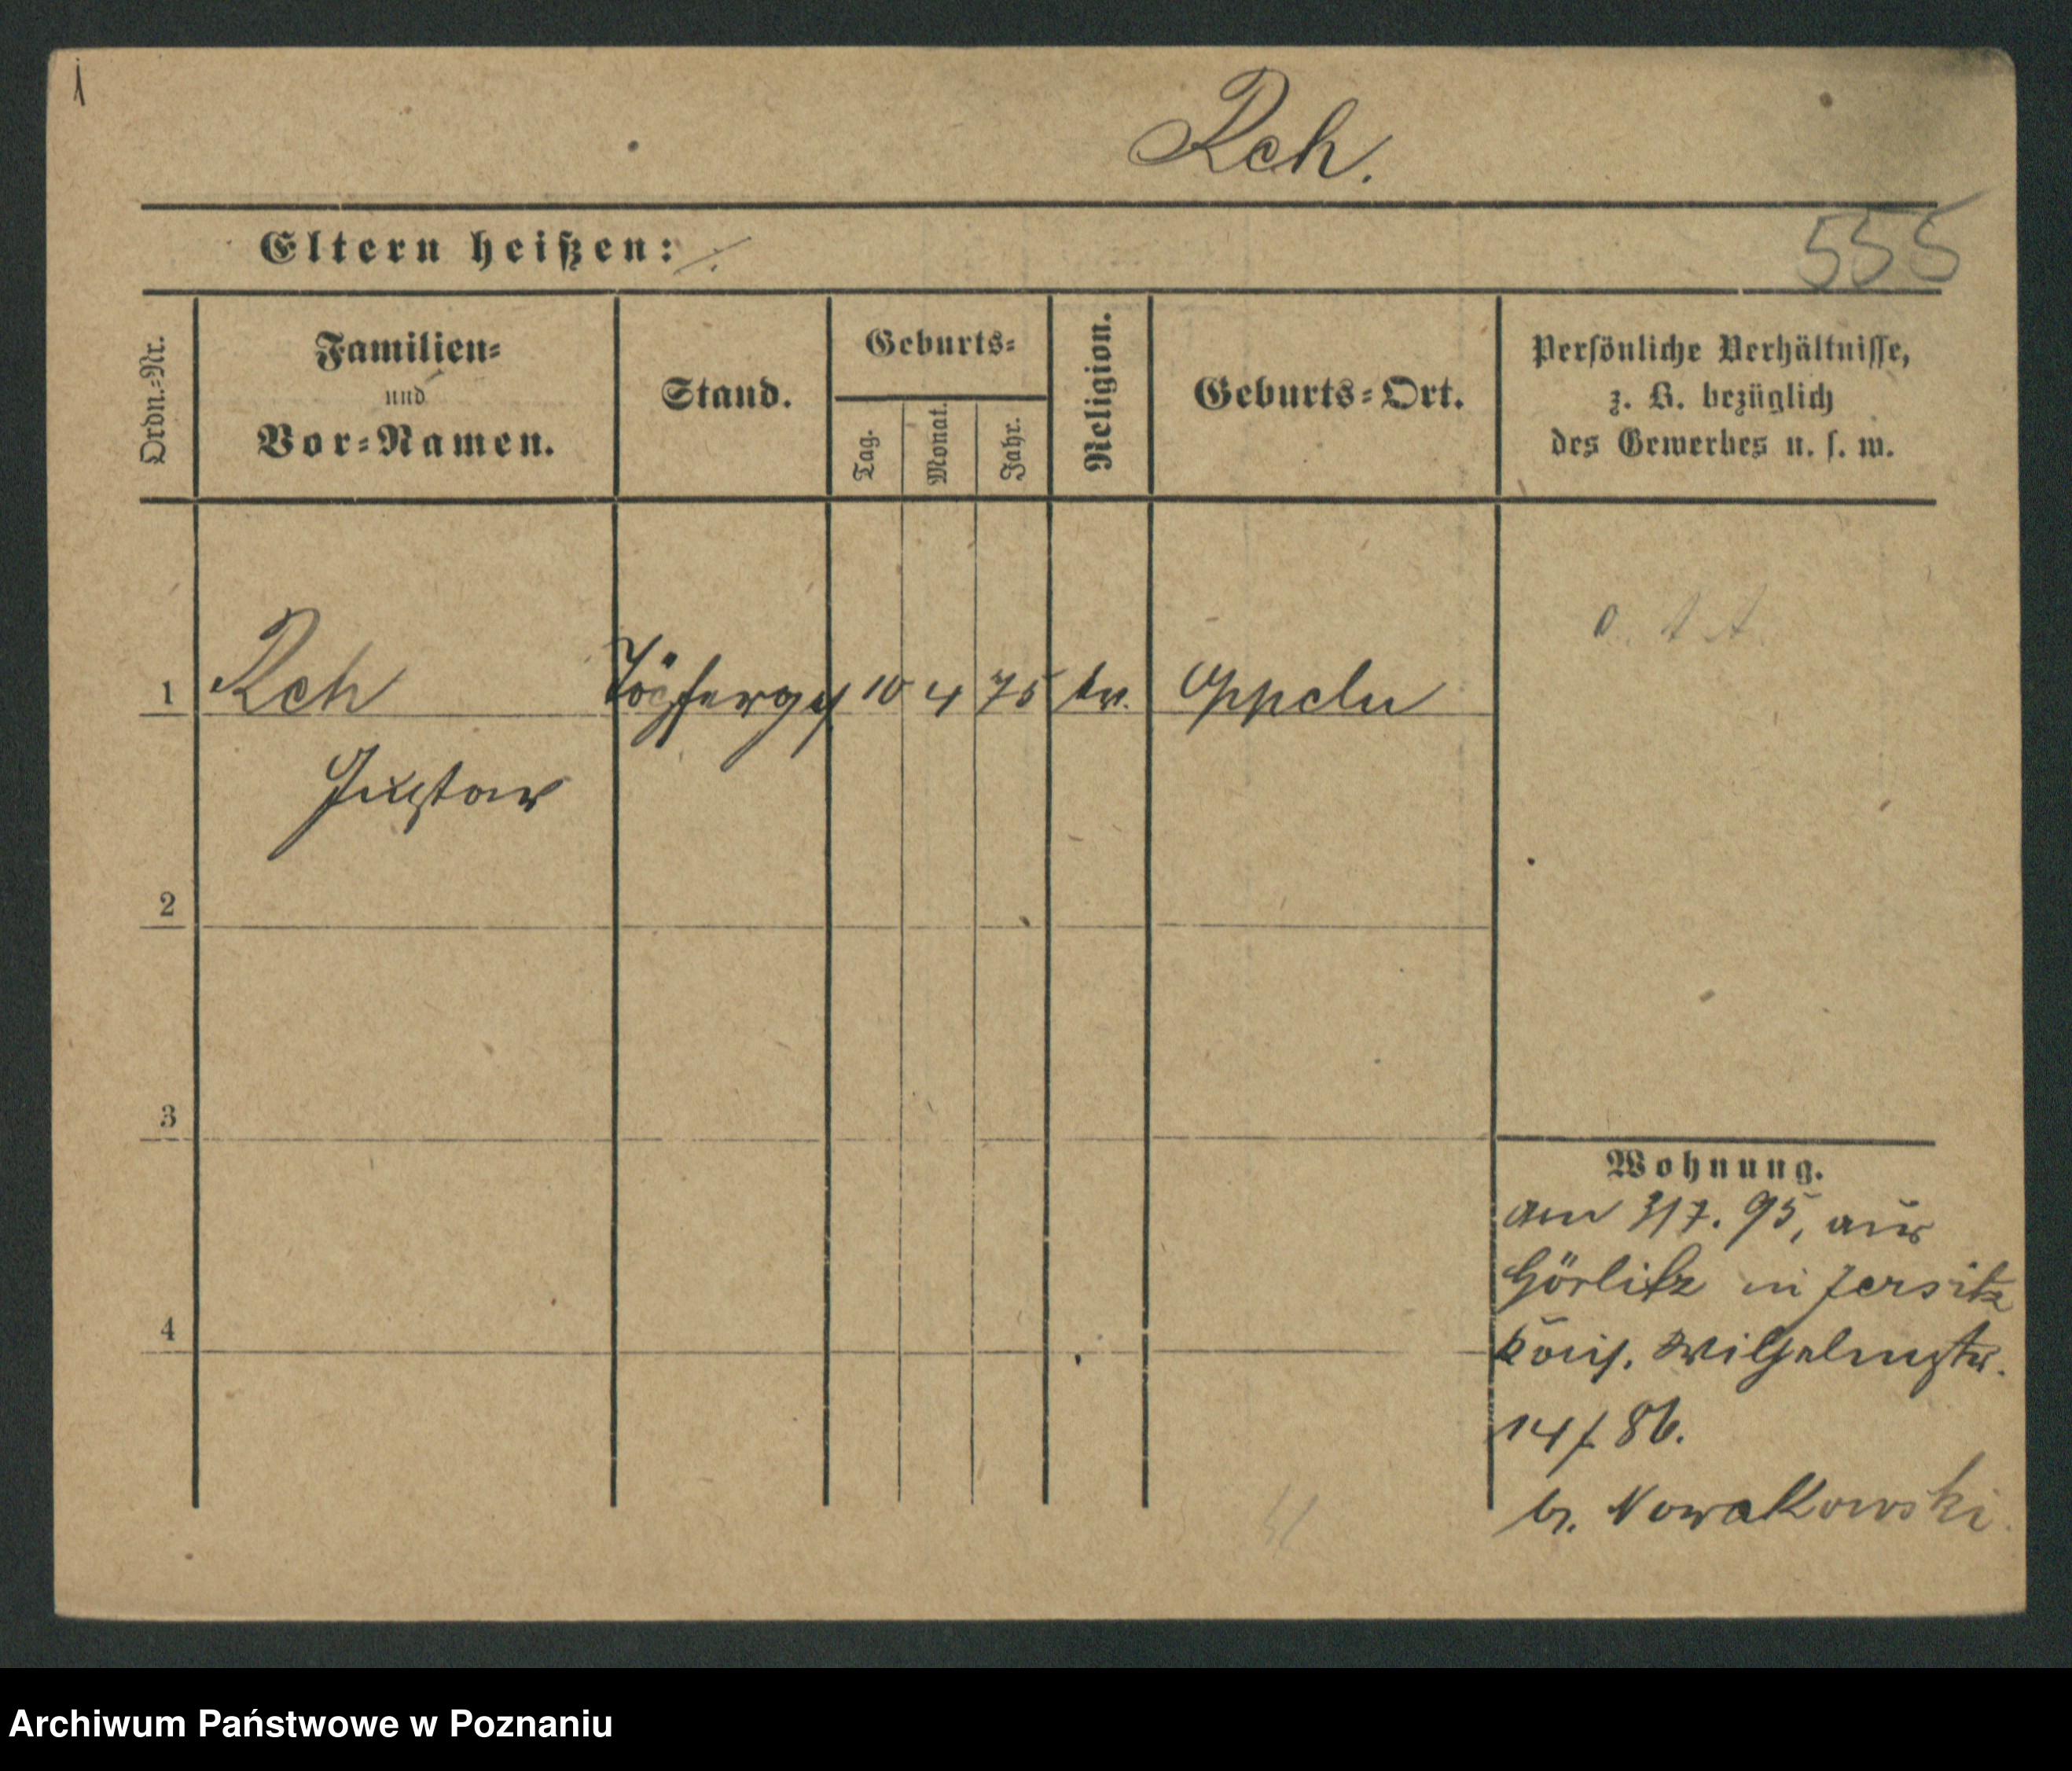 1
Rch.
Eltern heißen: ⁒
555
Ordn.=Nr.
Familien=
und
Vor=Namen.
Stand.
Geburts=
Tag.
Monat.
Jahr.
Religion.
Geburts=Ort.
Persönliche Verhältnisse,
z. B. bezüglich
des Gewerbes u. s. w.
1 Rch Töpferges 10 4 75 ev. Oppeln
Gustav
2
3
4
Wohnung.
am 3/7. 95, aus
Görlitz in Jersitz
König. Wilhelmstr.
14/ 86.
b. Nowakowski
Archiwum Państwowe w Poznaniu